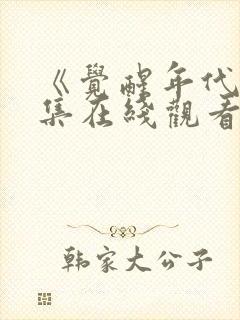 《覺醒年代
集在綫觀看
韩家大公子